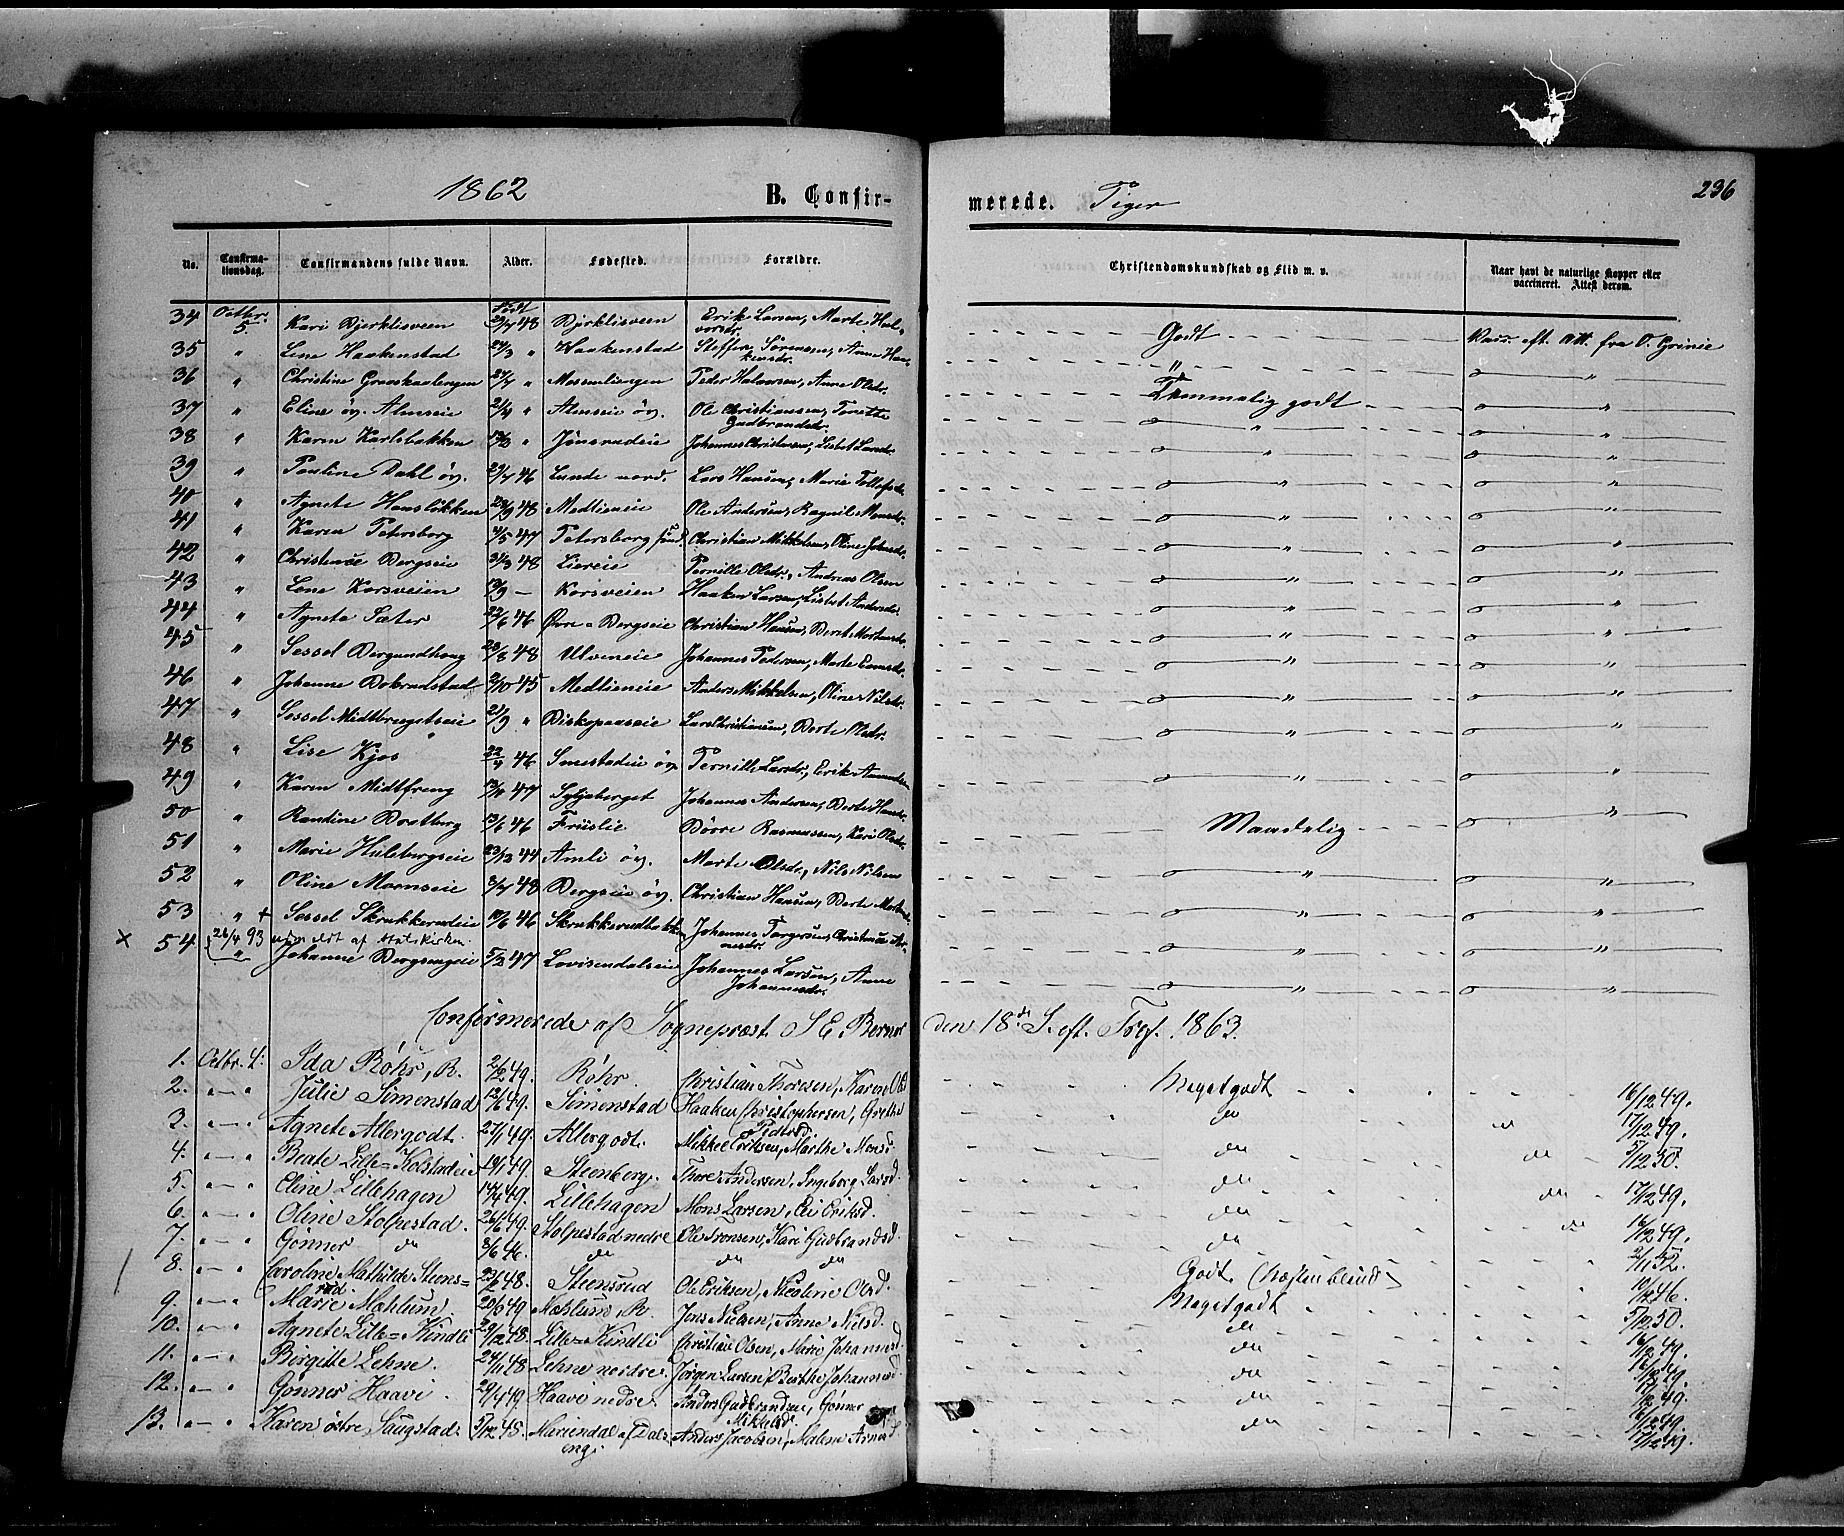 1862 B. Confir-merede. Piger 236
No. Confirmationsdag. Confirmandens fulde Navn. Alder. Fødested. Forældre. Christendomskundskab og Flid m. v. Naar havt de naturlige Kopper eller vaccineret. Attest derom.
34 Octbr. 5. Kari Bjerklisveen født 29/7 48 Bjerklisveen Erik Larsen, Marte Halvorsdr. Godt Vacc. eft. Att. fra O. Grinie
35 " Lene Haakenstad 24/3 " Haakenstad Steffen Sörensen, Anne Haakensdr. "
36 " Christine Graaskaalengen 27/7 " Mossenliengen Peder Halvorsen, Anne Olsdr. Temmelig godt "
37 " Eline öv. Almseie 21/4 " Almseie öv. Ole Christiansen, Torette Gudbrandsdr. "
38 " Karen Karlsbakken 19/3 " Jönsrudeie Johannes Christensen, Lisbet Larsdr. "
39 " Pauline Dahl öv. 29/7 46 Lunde nord. Lars Hansen, Marie Tollefsdr. "
40 " Agnete Hanslökken 23/9 48 Medlieneie Ole Andersen, Ragnil Monsdr. "
41 " Karen Petersborg 4/5 47 Petersborg Christian Mikkelsen, Oline Johnsdr. "
42 " Christence Bergseie 31/3 48 Liereie Pernille Olsdr., Andreas Olsen "
43 " Lene Korsveien 19/9 — Korsveien Haaken Larsen, Lisbet Andersdr. "
44 " Agnete Sæter 22/6 46 Øvre-Bergseie Christian Hansen, Berit Mortensdr. "
45 " Sessel Bergundhaug 23/8 48 Ulveneie Johannes Pedersen, Marte Evensdr. "
46 " Johanne Dobrudstad 2/10 45 Medlieneie Anders Mikkelsen, Oline Nilsdr. "
47 " Sessel Midtbrugetseie 21/9 " Biskopaaseie Lars Christiansen, Berte Olsdr. "
48 " Lise Kjos 22/4 46 Smestadeie öv. Pernille Larsdr., Erik "
49 " Karen Midtfreng 47 Syljeberget Johannes Andersen, Berte Hansdr. "
50 " Randine Brotberg 13/6 46 Friislie Börre Rasmussen, Kari Olsdr. Maadelig "
51 " Marie Hulebergseie 23/12 44 Amli öv. Marte Olsdr., Nils Nilsen "
52 " Oline Mornseie 8/7 48 Bergseie öv. Christian Hansen, Berte "
53 " + Sessel Skrukkerudeie 19/6 46 Skrukkerudbakken Johannes Torgersen, Christence "
× 26/4 93 udm. af Statskirken
54 " Johanne Bergsengeie 5/2 47 Lovisendalseie Johannes Larsen, Anne Johannesdr. "
Confirmerede af Sogneprest S E Berner den 18de S. eft. Tref. 1863.
1. Octbr. 4: Ida Röhr, R. 2/2 49. Röhr. Christian Thoresen, Karen Olsd Megetgodt 16/12 49.
2. Julie Simenstad 12/6 49. Simenstad Haaken Christophersen, Grethe Pedersd. do 17/12 49.
3. Agnete Allergodt. 27/1 49. Allergodt. Mikkel Eriksen, Marthe Monsd. do 5/12 50.
4. Beate Lille=Kolstadeie 19/1 49. Steenberg. Thore Andersen, Ingeborg Larsd. do do 17/12 49.
5. Oline Lillehagen 14/4 49. Lillehagen Mons Larsen, Eli Eriksd. do do 16/12 49.
6. Oline Stolpestad. 26/6 49. Stolpestad nedre Ole Tronsen, Kari Gudbrandsd. do do
7. Gonner do 8/6 46. do do do 2/1 52.
8. Caroline Mathilde Steensrud. 23/6 48. Steensrud Ole Eriksen, Nicoline Olsd. Godt. (næstenblind) 46.
9. Marie Mæhlum. 20/3 49 Mæhlum, R. Jens Nielsen, Anne Nielsd. Megetgodt 5/12 50.
10. Agnete Lille=Kindli 29/12 48. Lille=Kindli Christian Olsen, Marie Johannesd. do 16/12 49.
11. Birgitte Lehne. 24/11 48 Lehne nedre. Jörgen Larsen, Berthe Johannesd. do 49.
12. Gonner Haavi. 29/4 49 Haave nedre. Anders Gudbrandsen, Gönner Mikkelsd. do 49.
13. Karen östre Saugstad. 5/12 48. Mariendal af Dalseng. Anders Jacobsen, Malene Arnesd. do 17/12 49.